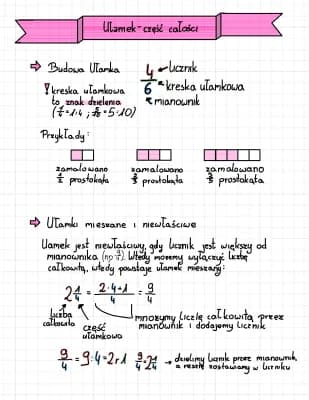 Ułamek - część całości
⇨ Budowa Ułamka
! kreska ułamkowa
to znak dzielenia
4 ← licznik
← kreska ułamkowa
6 ← mianownik
Przykłady:
zamalowano
prostokąta
zamalowano
prostokąta
zamalowano
prostokąta
⇨ Ułamki mieszane i niewłaściwe
Uamek jest niewłaściwy, gdy licznik jest większy od
mianownika Wtedy możemy wyłączyć liczbę
całkowitą, wtedy powstaje ułamek mieszany:
2 1/4 = 2·4+1/4 = 9/4
liczba
całkowita
część
ułamkowa
mnożymy liczbę całkowitą przez
mianownik i dodajemy licznik
9/4 = 9:4 = 2 r 1
→ dzielimy licznik przez mianownik,
a resztę zostawiamy w liczniku